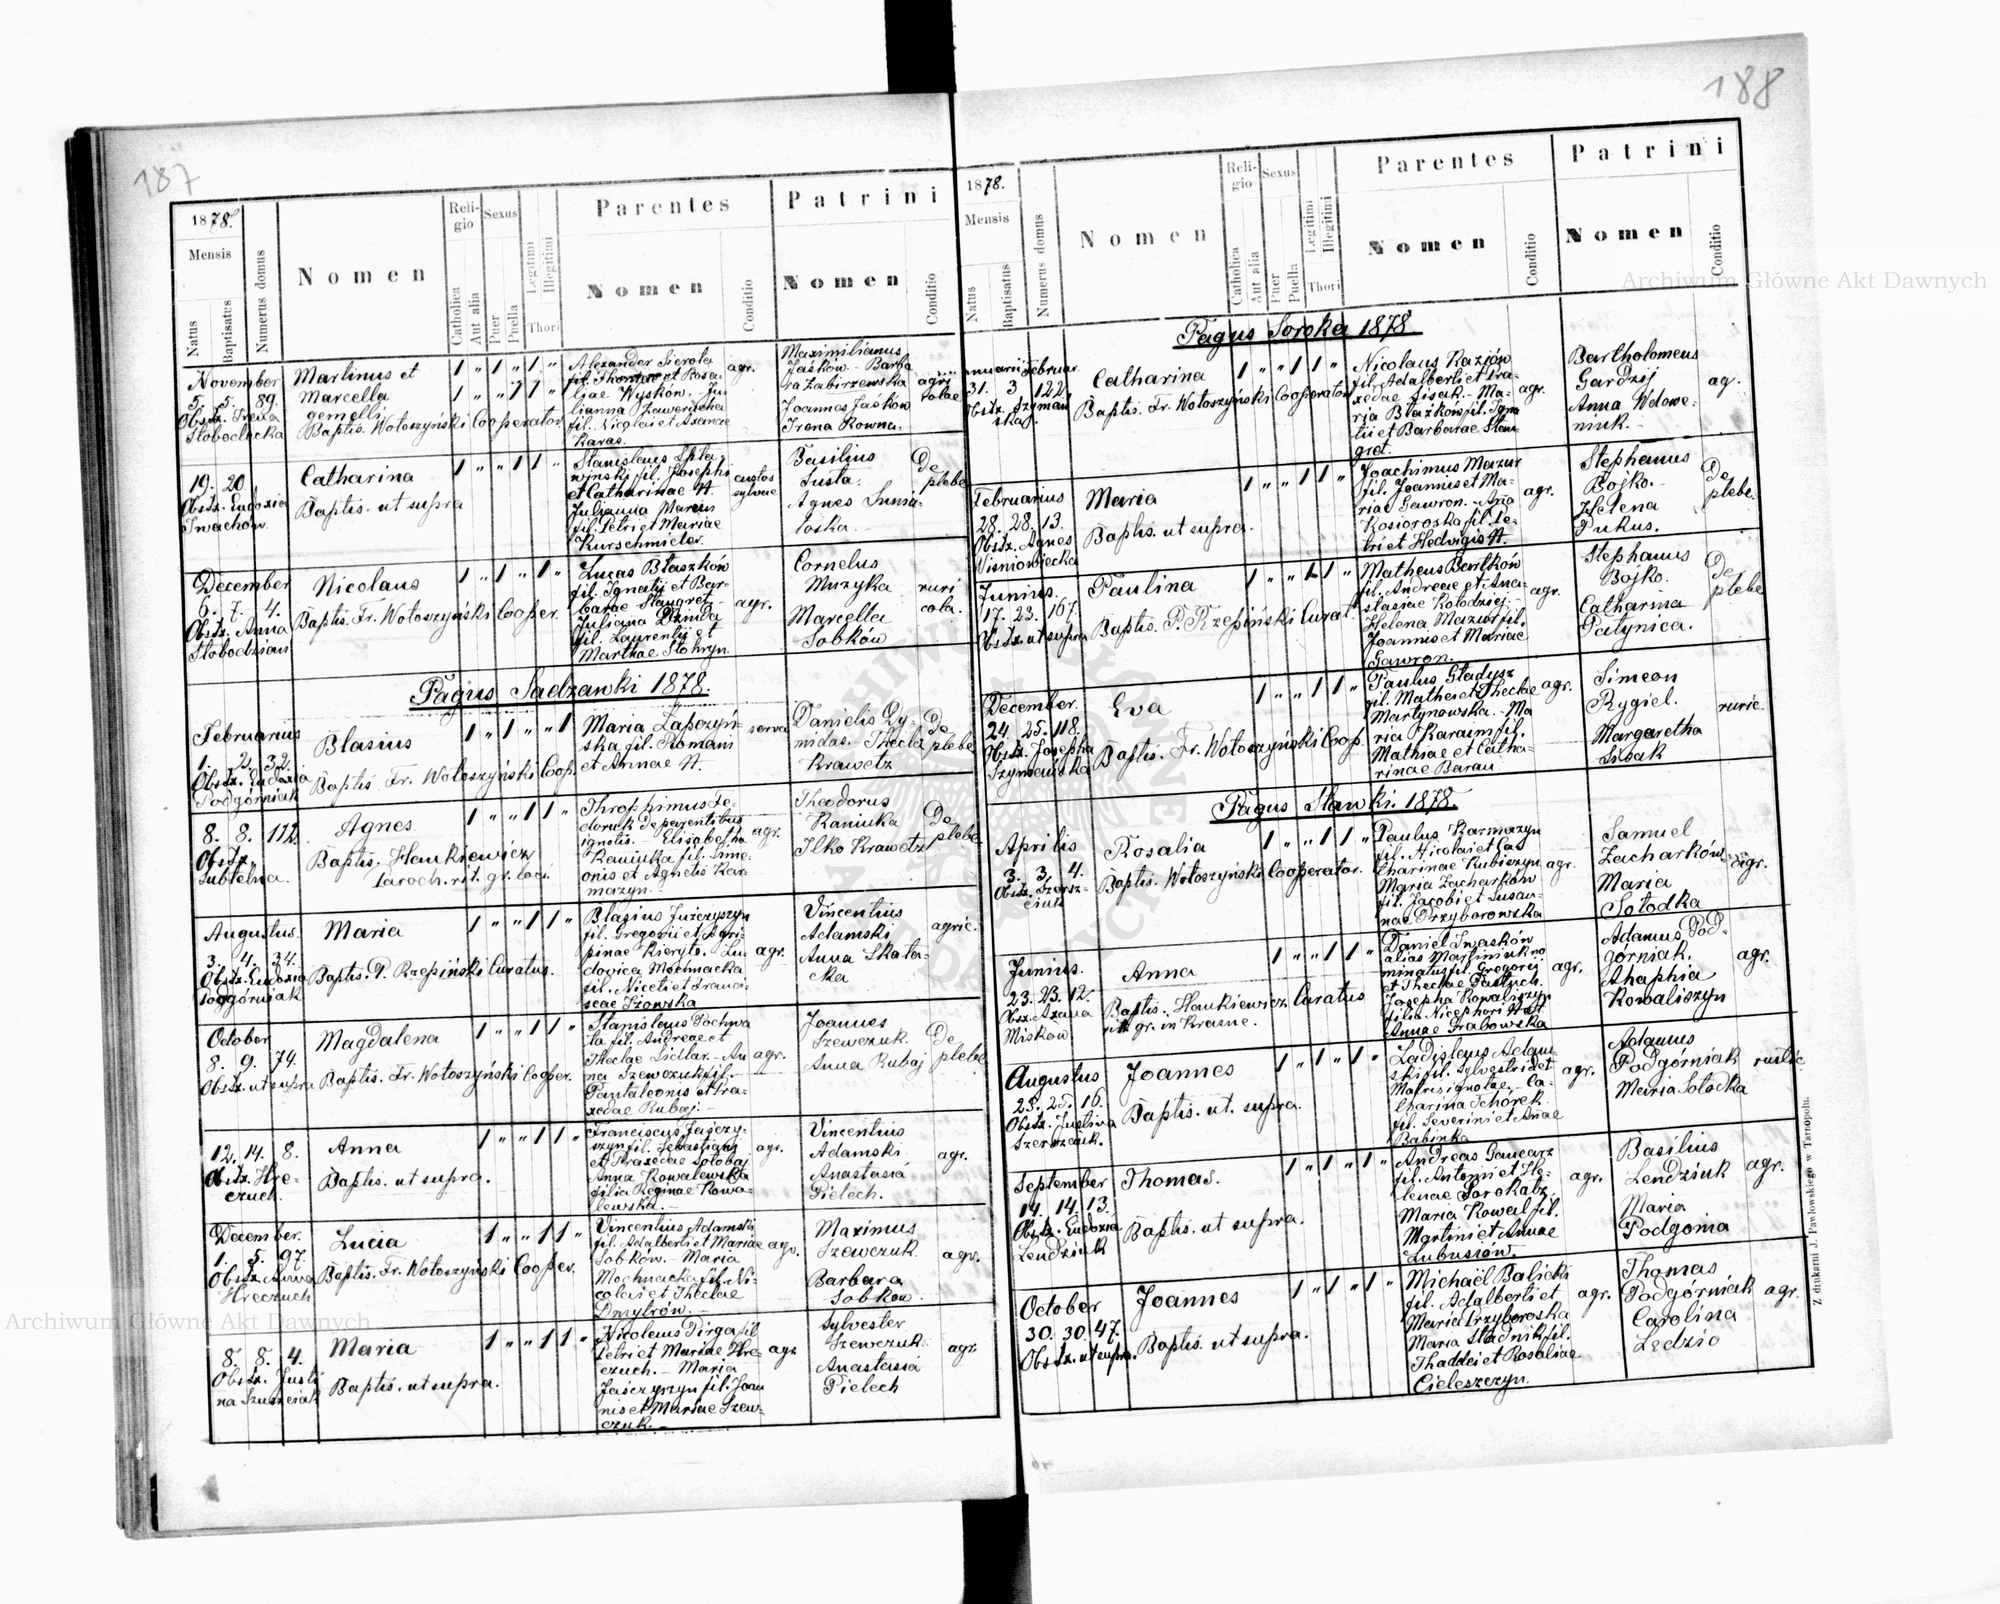 187
1878.
Mensis
Natus
Baptisatus
Numerus domus
Nomen
Religio
Catholica
Aut alia
Sexus
Puer
Puella
Legitimi
Illegitimi
Thori
Parentes
Nomen
Conditio
Patrini
Nomen
Conditio
November
5. 5. 89.
Obstz.
Słobodzka
Martinus et
Marcella
gemelli
Baptis. Wołoszyński Cooperator
Alexander Sierota
fil. Thomae et Rosa-
liae Wyskow. Ju-
lianna Zawerucha
fil. Nicolai et Axenae
Karas.
agr.
Maximilianus
Jaśkow - Barba
ra Zabirzewska
Joannes Jaśkow
Irena Rowna.
agri
colae
19. 20.
Obstz. Eudoxia
Iwachów
Catharina
Baptis. ut supra
Stanislaus
fil. Josephi
et Catharinae N.
Julianna Marcus
fil. Petri et Mariae
Kurschmieler.
custos
sylvae
Basilius
Susta.
Agnes
De
plebe
December
6. 7. 4.
Obstz. Anna
Słobodzian
Nicolaus
Baptis. Fr. Wołoszyński Cooper.
Lucas Błaszków
fil. Ignatii et Bar-
barae Staugret
Juliana Dzniba
fil. Laurentii et
Marthae Stohryn.
agr.
Cornelus
Muzyka
Marcella
Sobków
ruri
cola.
Pagus Sadzawki 1878.
Februarius
1. 2. 32.
Obstz. Eudoxia
Podgórniak
Blasius
Baptis. Fr. Wołoszyński Coop.
Maria Łapczyń-
ska fil. Romani
et Annae N.
serva
Danielis Dy-
midas. Thecla
Krawetz
De
plebe
8. 8. 112.
Obstz.
Subtelna.
Agnes
Baptis. Hankiewicz
Paroch. rit. gr. loci.
Throphimus Fe-
doruk de parentibus
ignotis. - Elisabetha
Kaniuka fil. Sime-
onis et Agnetis Kar-
mazyn.
agr.
Theodorus
Kaniuka
Ilko Krawetz
De
plebe
Augustus.
3. 4. 34.
Obstz. Eudoxia
Podgórniak
Maria
Baptis. P. Rzepiński Curatus.
Blasius Juzczyszyn
fil. Gregorii et Agri-
pinae Kieryło. - Lu-
dovica Mochnacka
fil. Niceti et Franci-
scae Szowska
agr.
Vincentius
Adamski
Anna Skała-
cka
agric.
October
8. 9. 74.
Obstz. ut supra
Magdalena
Baptis. Fr. Wołoszyński Cooper.
Stanislaus Pochwa
ła fil. Andreae et
Theclae Sidlar. - An
na Szewczuk fil.
Pantaleonis et Pra-
xedae Rubaj. -
agr.
Joannes
Szewczuk.
Anna Rubaj
De
plebe
12. 14. 8.
Obstz. Hre-
czuch.
Anna
Baptis. ut supra.
Franciscus Jaśczy-
szyn fil. Sebastiani
et Praxedae Sołobaj
Anna Kowalewska
filia Reginae Kowa-
lewska. -
agr.
Vincentius
Adamski
Anastasia
Pielech.
agr.
December.
1. 5. 97.
Obstz. Anna
Hreczuch
Lucia
Baptis. Fr. Wołoszyński Cooper.
Vincentius Adamski
fil. Adalberti et Mariae
Sobków. - Maria
Mochnacka fil. Ni-
colai et Theclae
Dmytrów. -
agr.
Maximus
Szewczuk.
Barbara
Sobkow.
agr.
8. 8. 4.
Obstz. Justi
na
Maria
Baptis. ut supra.
Nicolaus Pirga fil
Petri et Mariae Hre-
czuch. - Maria
Jaśczyszyn fil. Joan
nis et Mariae Szew-
czuk. -
agr.
Sylvester
Szewczuk.
Anastasia
Pielech
agr.
188
1878.
Mensis
Natus
Baptisatus
Numerus domus
Nomen
Religio
Catholica
Aut alia
Sexus
Puer
Puella
Legitimi
Illegitimi
Thori
Parentes
Nomen
Conditio
Patrini
Nomen
Conditio
Pagus Soroka 1878
31. 3 122.
Obstz. Szyman
ska.
Catharina
Baptis. Fr. Wołoszyński Cooperator
Nicolaus Kazión
fil. Adalberti et Pra-
xedae Lisak - Ma-
ria Błażków fil. Igna
tii et Barbarae Stau-
gret.
agr.
Bartholomeus
Gardzij
Anna Wdowe-
niuk. -
ag.
Februarius
28. 28. 13.
Obstz. Agnes
Wiśniowiecka
Maria
Baptis. ut supra.
Joachimus Mazur
fil. Joannis et Ma-
riae Gawron. - Anna
Kosiorowska fil. Pe-
tri et Hedvigis N.
agr.
Stephanus
Bojko. -
Helena
Pukus.
De
plebe.
Junius.
17. 23. 167.
Obstz. ut supra
Paulina
Baptis. P. Rzepiński Curat.
Matheus Bartków
fil. Andreae et Ana-
stasiae Kołodziej. -
Helena Mazur fil.
Joannis et Mariae
Gawron.
agr.
Stephanus
Bojko.
Catharina
Patynica.
De
plebe
December.
24. 25. 118.
Obstz. Josepha
Szymańska
Eva
Baptis. Fr. Wołoszyński Coop.
Paulus Gładysz
fil. Mathei et Theclae
Martynowska. - Ma
ria Karaim fil.
Mathiae et Catha-
rinae Baran
agr.
Simeon
Rygiel.
Margaretha
Lisak
ruric.
Pagus Sławki. 1878.
Aprilis
3. 3. 4.
Rosalia
Baptis. Wołoszyński Cooperator.
Paulus Karmazyn
fil. Nicolai et Ca
tharinae Kubiszyn
Maria Zacharków
fil. Jacobi et Susan-
nae Przyborowska
agr.
Samuel
Zacharków
Maria
Sołodka
agr.
Junius.
23. 23. 12.
Obsz. Axana
Miskow
Anna
Baptis. Hankiewicz Curatus
rit. gr. in Krasne.
Daniel Iwasków
alias Martiniuk no
minatus fil. Gregorii
et Theclae Pastuch.
Josepha Kowaliszyn
filia Nicephori
Annae Grabowska
agr.
Adamus Pod-
górniak.
Ahaphia
Kowaliszyn
agr.
Augustus
25. 25. 16.
Obstz. Justina
Joannes
Baptis. ut. supra.
Ladislaus Adam-
ski fil. Sylvestri et
Matris ignotae. - Ca-
tharina Tchórek
fil. Severini et Annae
Babinka
agr.
Adamus
Podgórniak
Maria Sołodka
rustic
September
14. 14. 13.
Obstz. Eudoxia
Lendziuk
Thomas.
Baptis. ut supra.
Andreas Gancarz
fil. Antonii et He-
lenae Sorokatz.
Maria Kowal fil.
Martini et Annae
Lubusiów.
agr.
Basilius
Lendziuk
Maria
Podgonia
agr.
October
30. 30. 47.
Obstz. ut supra.
Joannes
Baptis. ut supra.
Michaël Balicki
fil. Adalberti et
Maria Przyborowska
Maria Stadnik fil.
Thaddei et Rosaliae
Cieleszczyn.
agr.
Thomas
Podgórniak
Carolina
Ledzio
agr.
Z drukarni J. Pawłowskiego w Tarnopolu.
Archiwum Główne Akt Dawnych
Archiwum Główne Akt Dawnych